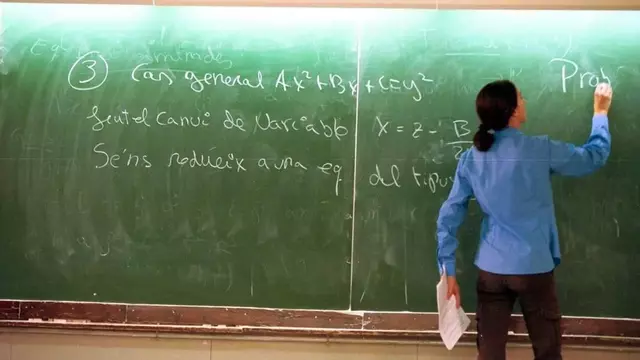 ③ Cas general Ax²+Bx+C=y²
fent el canvi de variable x = z - B/2
Se'ns redueix a una eq del tipus
Prob